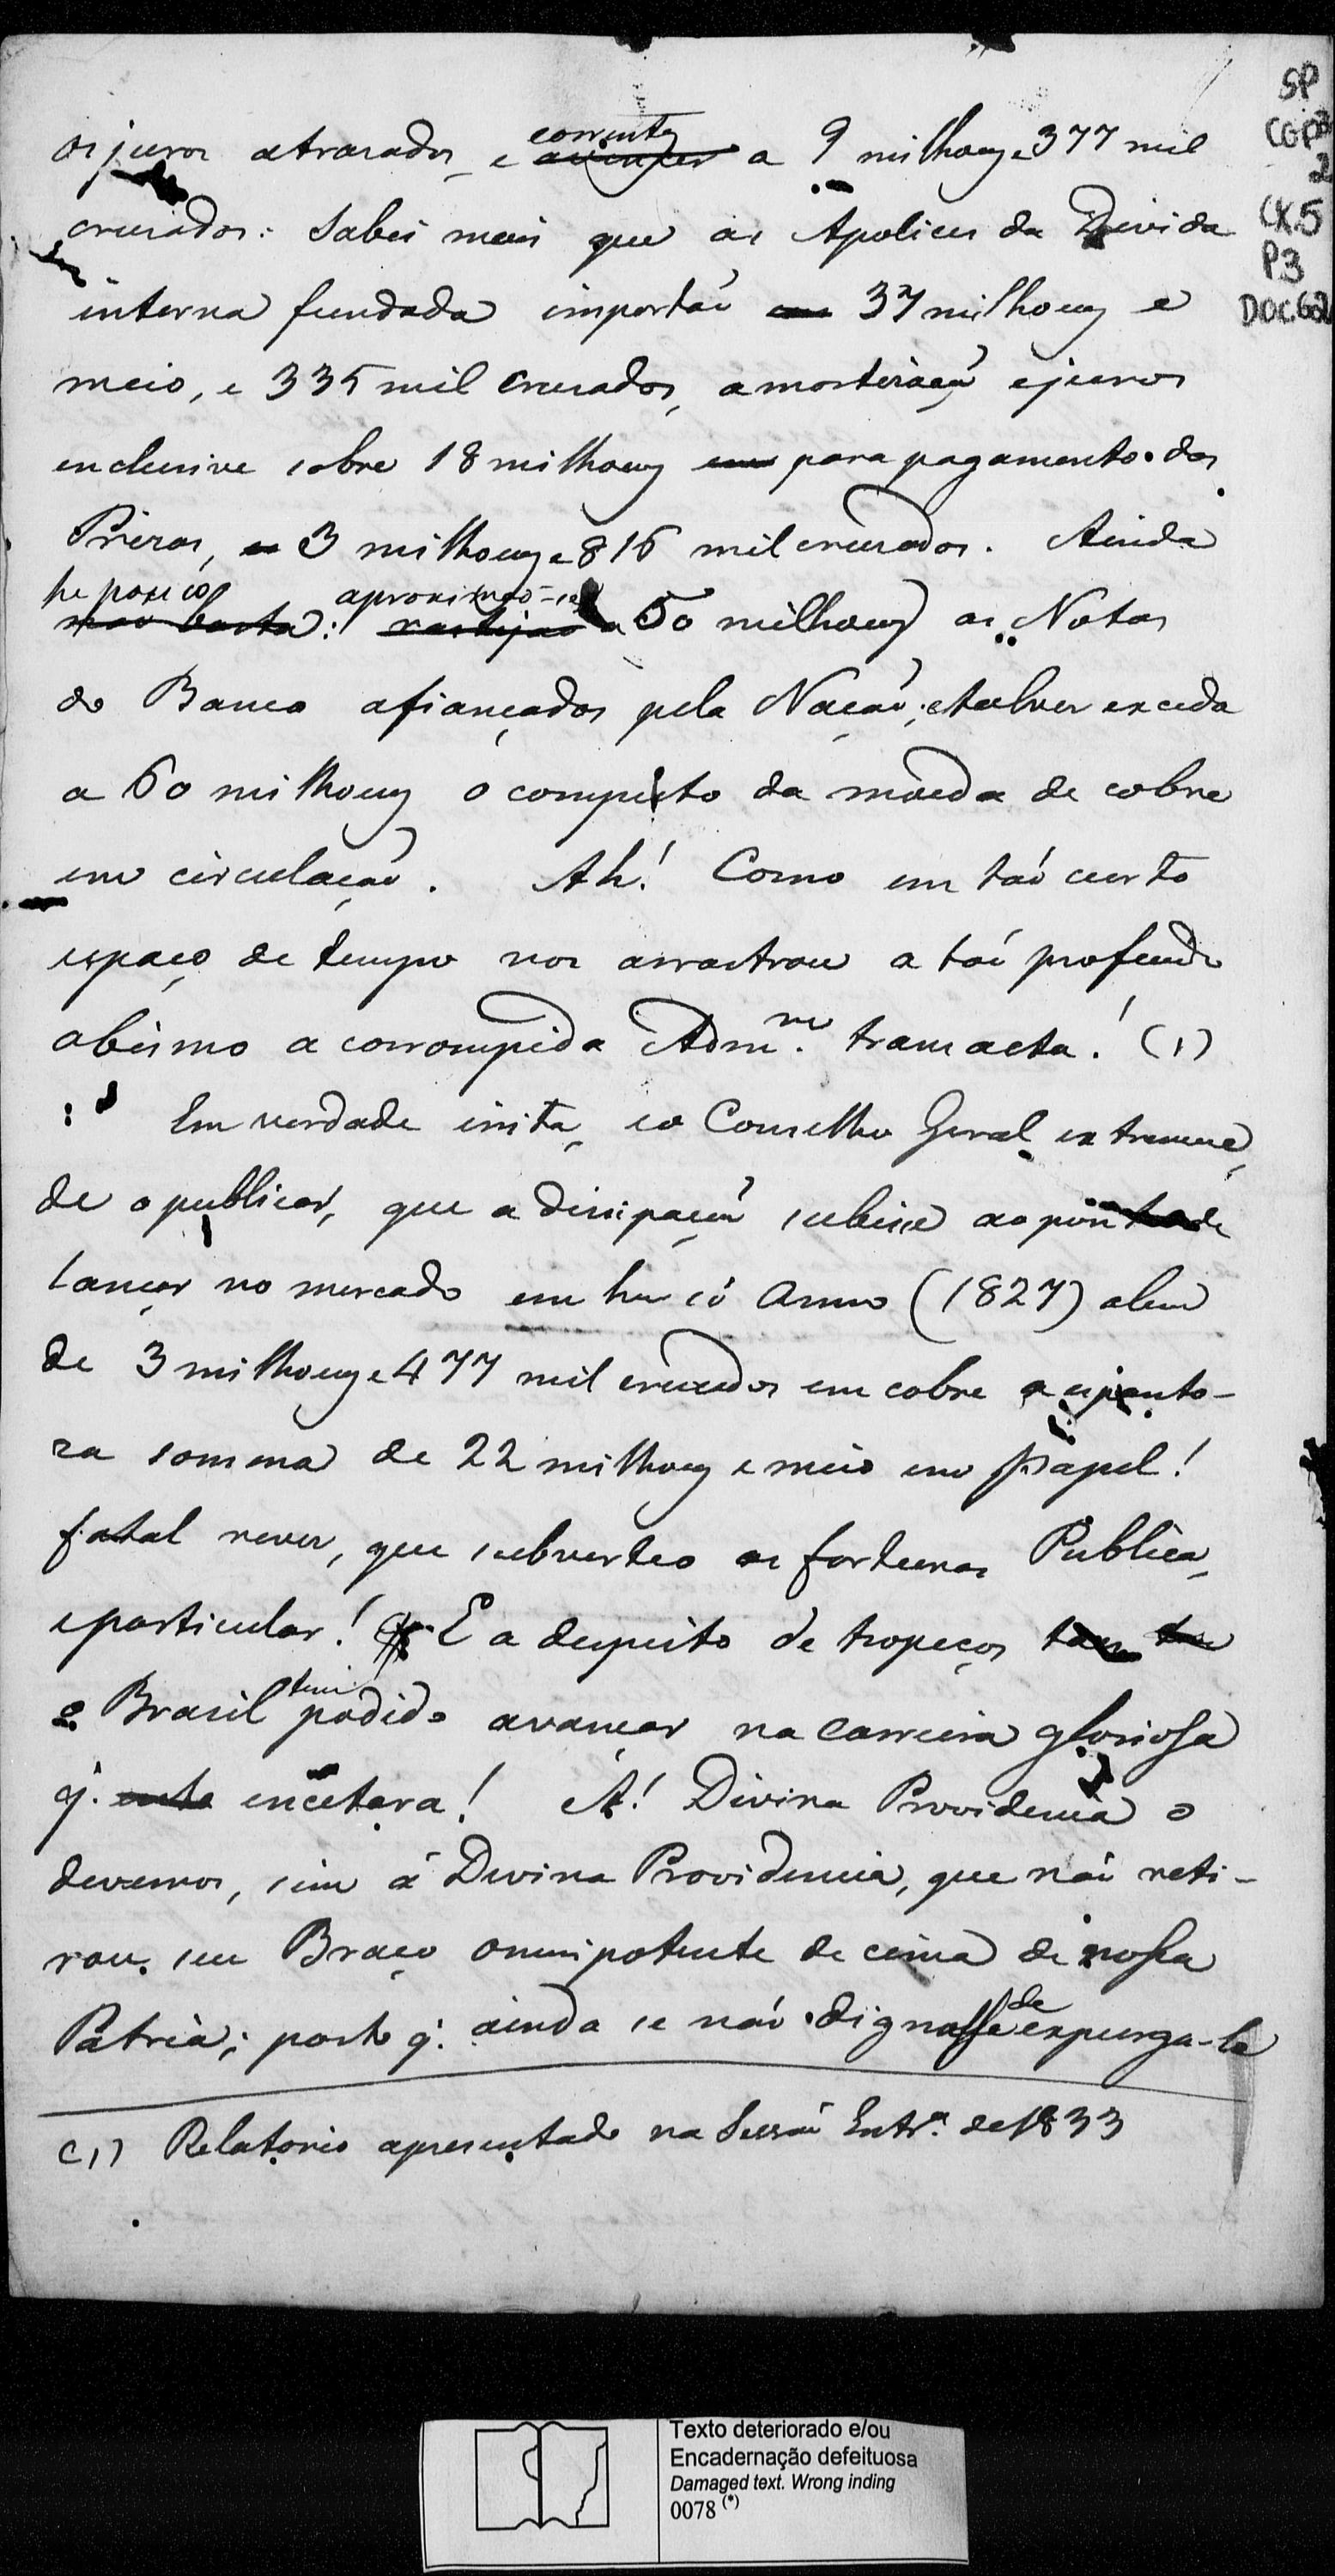 SP
CGP3
2
CX.5
P3
DOC62
os juros atrasados, e correntes a 9 milhoens e 377 mil
crusados: Sabeis mais que as Apolices da Divida
interna fundada importáo em 37 milhoens e
meio, e 335 mil crusados, amortisaçaõ e juros
inclusive sobre 18 milhoens para pagamento das
Prezas, 3 milhoens e 816 mil crusados. Ainda
he pouco
não basta: aproximaõ-se a 50 milhoens as Notas
do Banco afiançadas pela Naçaõ; e talvez exceda
a 60 milhoens o computo da moeda de cobre
em circulaçaõ. Ah! Como em taõ curto
espaço de tempo nos arrastrou a taõ profundo
abismo a corrompida Adm.m transacta! (1)
Em verdade irrita, e o Conselho Geral extremece
de o publicar, que a dissipaçaõ subisse ao ponto de
lançar no mercado em hu só anno (1827) alem
de 3 milhoens e 477 mil crusados em cobre a espanto-
za somma de 22 milhoens e meio em papel!
fatal revez, que subverteo as fortunas Publica,
e particular! E a despeito de tropeços
o Brasil tem podido avançar na carreira gloriosa
q. encetara! Á! Divina Providencia o
devemos, sim á Divina Providencia, que naõ reti-
rou seu Braço omnipotente de cima de nossa
Patria; posto q. ainda se naõ dignasse de expurga-la
(1) Relatorio apresentado na Sessaõ Extr.a de 1833
Texto deteriorado e/ou
Encadernação defeituosa
Damaged text. Wrong inding
0078 (*)